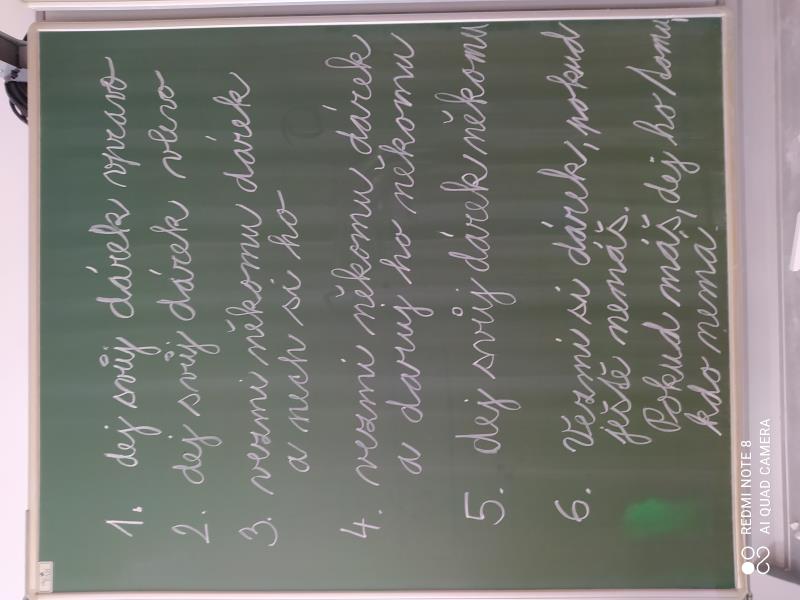 1. dej svůj dárek vpravo
2. dej svůj dárek vlevo
3. vezmi někomu dárek
a nech si ho
4. vezmi někomu dárek
a daruj ho někomu
5. dej svůj dárek někomu
6. Vezmi si dárek, pokud
ještě nemáš.
Pokud máš, dej ho tomu,
kdo nemá.
REDMI NOTE 8
AI QUAD CAMERA